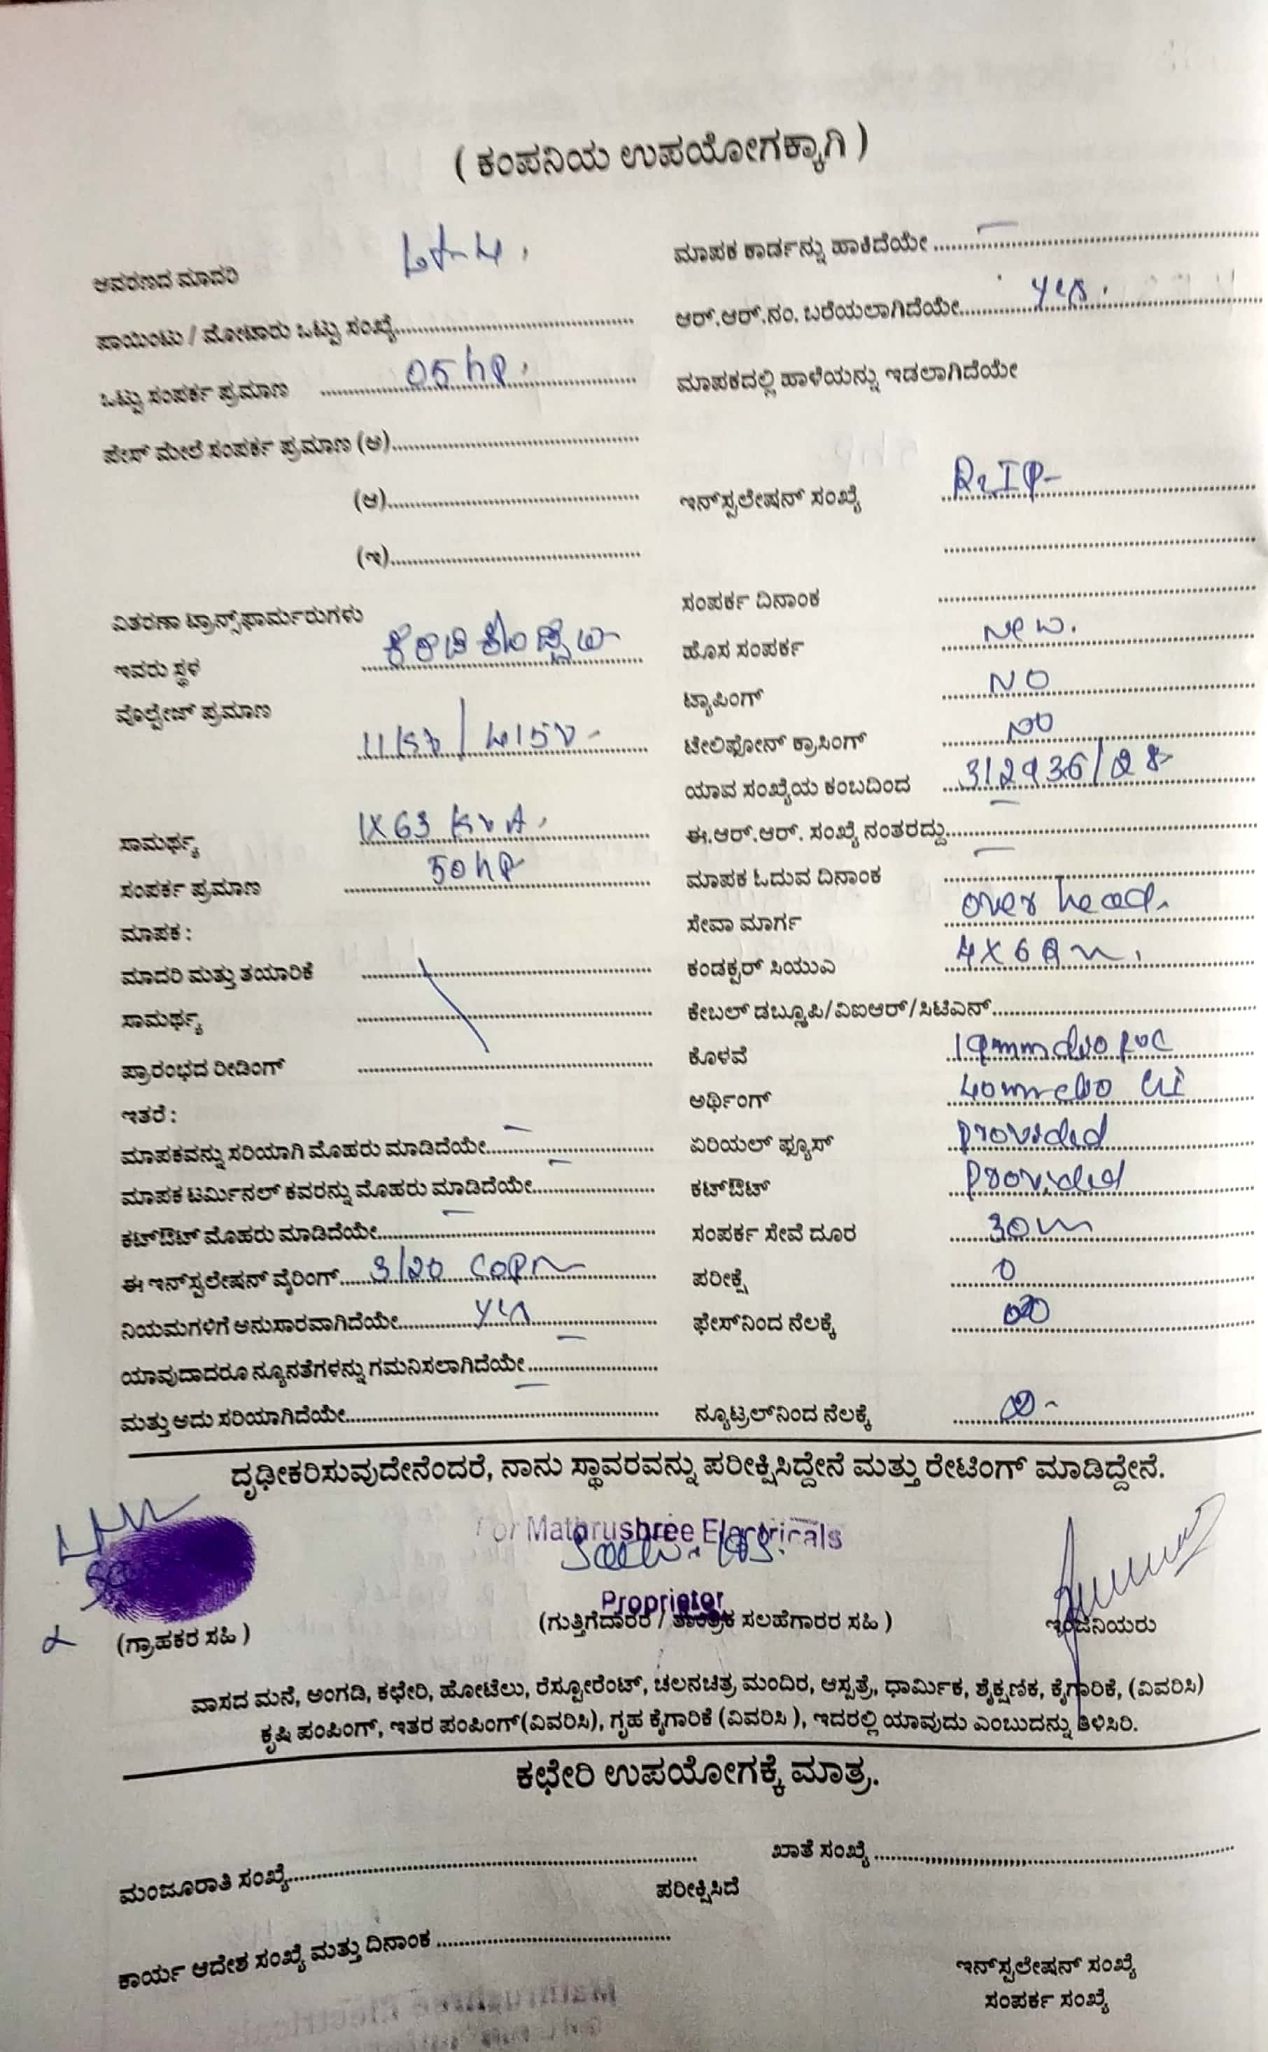 ( ಕಂಪನಿಯ ಉಪಯೋಗಕ್ಕಾಗಿ )
ಆವರಣದ ಮಾದರಿ
ಪಾಯಿಂಟು / ಮೋಟಾರು ಒಟ್ಟು ಸಂಖ್ಯೆ..........
ಒಟ್ಟು ಸಂಪರ್ಕ ಪ್ರಮಾಣ .......... 05 hp.
ಪೇಸ್ ಮೇಲೆ ಸಂಪರ್ಕ ಪ್ರಮಾಣ (ಅ)..........
(ಆ)..........
(ಇ)..........
ವಿತರಣಾ ಟ್ರಾನ್ಸ್‌ಫಾರ್ಮರುಗಳು
ಇವರು ಸ್ಥಳ
ವೊಲ್ಟೇಜ್ ಪ್ರಮಾಣ 11kv / 415v
ಸಾಮರ್ಥ್ಯ 1X63 KVA.
ಸಂಪರ್ಕ ಪ್ರಮಾಣ 50 hp
ಮಾಪಕ :
ಮಾದರಿ ಮತ್ತು ತಯಾರಿಕೆ ..........
ಸಾಮರ್ಥ್ಯ ..........
ಪ್ರಾರಂಭದ ರೀಡಿಂಗ್ ..........
ಇತರೆ :
ಮಾಪಕವನ್ನು ಸರಿಯಾಗಿ ಮೊಹರು ಮಾಡಿದೆಯೇ..........
ಮಾಪಕ ಟರ್ಮಿನಲ್ ಕವರನ್ನು ಮೊಹರು ಮಾಡಿದೆಯೇ..........
ಕಟ್‌ಔಟ್ ಮೊಹರು ಮಾಡಿದೆಯೇ..........
ಈ ಇನ್‌ಸ್ಟಲೇಷನ್ ವೈರಿಂಗ್.......... 3/20
ನಿಯಮಗಳಿಗೆ ಅನುಸಾರವಾಗಿದೆಯೇ.......... yes
ಯಾವುದಾದರೂ ನ್ಯೂನತೆಗಳನ್ನು ಗಮನಿಸಲಾಗಿದೆಯೇ..........
ಮತ್ತು ಅದು ಸರಿಯಾಗಿದೆಯೇ..........
ಮಾಪಕ ಕಾರ್ಡನ್ನು ಹಾಕಿದೆಯೇ ..........
ಆರ್.ಆರ್.ನಂ. ಬರೆಯಲಾಗಿದೆಯೇ.......... yes.
ಮಾಪಕದಲ್ಲಿ ಹಾಳೆಯನ್ನು ಇಡಲಾಗಿದೆಯೇ
ಇನ್‌ಸ್ಟಲೇಷನ್ ಸಂಖ್ಯೆ
ಸಂಪರ್ಕ ದಿನಾಂಕ ..........
ಹೊಸ ಸಂಪರ್ಕ New.
ಟ್ಯಾಪಿಂಗ್ NO
ಟೇಲಿಫೋನ್ ಕ್ರಾಸಿಂಗ್ NO
ಯಾವ ಸಂಖ್ಯೆಯ ಕಂಬದಿಂದ 312936/28
ಈ.ಆರ್.ಆರ್. ಸಂಖ್ಯೆ ನಂತರದ್ದು..........
ಮಾಪಕ ಓದುವ ದಿನಾಂಕ ..........
ಸೇವಾ ಮಾರ್ಗ over head.
ಕಂಡಕ್ಟರ್ ಸಿಯುಎ
ಕೇಬಲ್ ಡಬ್ಲ್ಯೂಪಿ/ವಿಐಆರ್/ಸಿಟಿಎಸ್..........
ಕೊಳವೆ 19mm dvo pvc
ಅರ್ಥಿಂಗ್
ಏರಿಯಲ್ ಫ್ಯೂಸ್ provided
ಕಟ್‌ಔಟ್ provided
ಸಂಪರ್ಕ ಸೇವೆ ದೂರ 30m
ಪರೀಕ್ಷೆ 0
ಫೇಸ್‌ನಿಂದ ನೆಲಕ್ಕೆ
ನ್ಯೂಟ್ರಲ್‌ನಿಂದ ನೆಲಕ್ಕೆ
ದೃಢೀಕರಿಸುವುದೇನೆಂದರೆ, ನಾನು ಸ್ಥಾವರವನ್ನು ಪರೀಕ್ಷಿಸಿದ್ದೇನೆ ಮತ್ತು ರೇಟಿಂಗ್ ಮಾಡಿದ್ದೇನೆ.
For Mathrushree Electricals
Proprietor
(ಗ್ರಾಹಕರ ಸಹಿ )
(ಗುತ್ತಿಗೆದಾರರ / ತಾಂತ್ರಿಕ ಸಲಹೆಗಾರರ ಸಹಿ )
ಇಂಜಿನಿಯರು
ವಾಸದ ಮನೆ, ಅಂಗಡಿ, ಕಛೇರಿ, ಹೋಟೆಲು, ರೆಸ್ಟೋರೆಂಟ್, ಚಲನಚಿತ್ರ ಮಂದಿರ, ಆಸ್ಪತ್ರೆ, ಧಾರ್ಮಿಕ, ಶೈಕ್ಷಣಿಕ, ಕೈಗಾರಿಕೆ, (ವಿವರಿಸಿ)
ಕೃಷಿ ಪಂಪಿಂಗ್, ಇತರ ಪಂಪಿಂಗ್(ವಿವರಿಸಿ), ಗೃಹ ಕೈಗಾರಿಕೆ (ವಿವರಿಸಿ ), ಇದರಲ್ಲಿ ಯಾವುದು ಎಂಬುದನ್ನು ತಿಳಿಸಿರಿ.
ಕಛೇರಿ ಉಪಯೋಗಕ್ಕೆ ಮಾತ್ರ.
ಮಂಜೂರಾತಿ ಸಂಖ್ಯೆ..........
ಖಾತೆ ಸಂಖ್ಯೆ ..........
ಪರೀಕ್ಷಿಸಿದೆ
ಕಾರ್ಯ ಆದೇಶ ಸಂಖ್ಯೆ ಮತ್ತು ದಿನಾಂಕ ..........
ಇನ್‌ಸ್ಟಲೇಷನ್ ಸಂಖ್ಯೆ
ಸಂಪರ್ಕ ಸಂಖ್ಯೆ